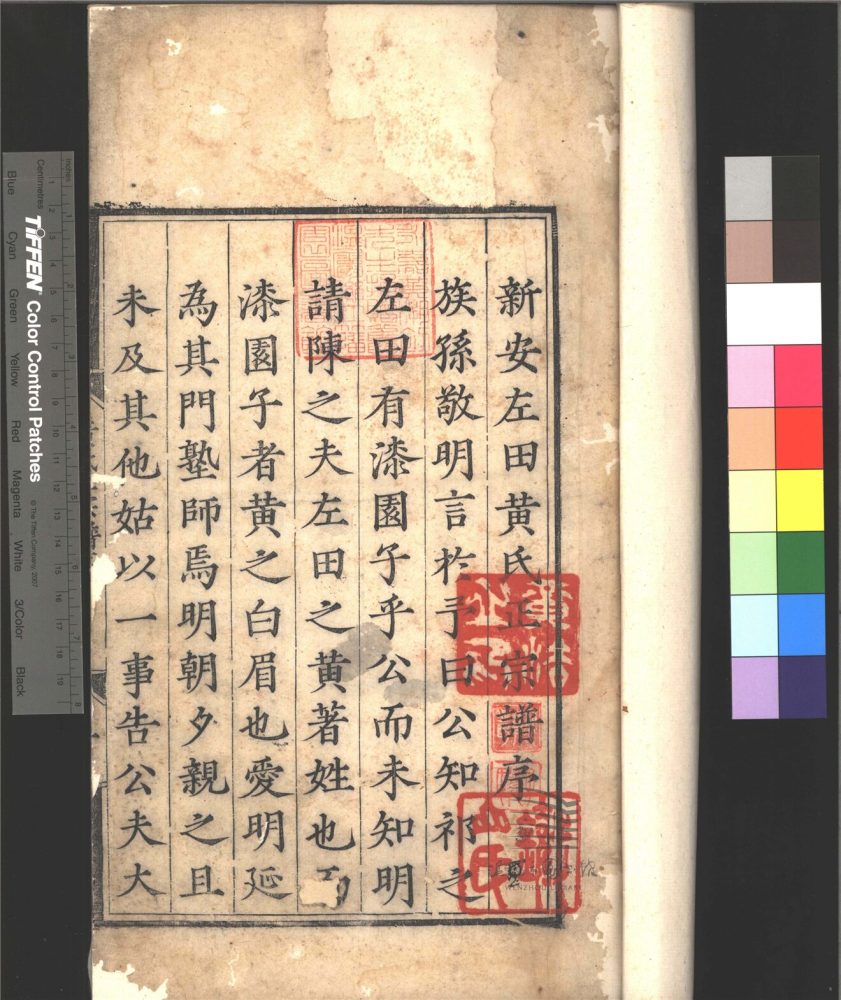 新安左田黃氏正宗譜序
族孫敬明言於予曰公知祁之
左田有漆園子乎公而未知明
請陳之夫左田之黃著姓也
漆園子者黃之白眉也愛明延
為其門塾師焉明朝夕親之且
未及其他姑以一事告公夫大
Inches
Centimetres
TIFFEN Color Control Patches
© The Tiffen Company, 2007
Blue Cyan Green Yellow Red Magenta White 3/Color Black